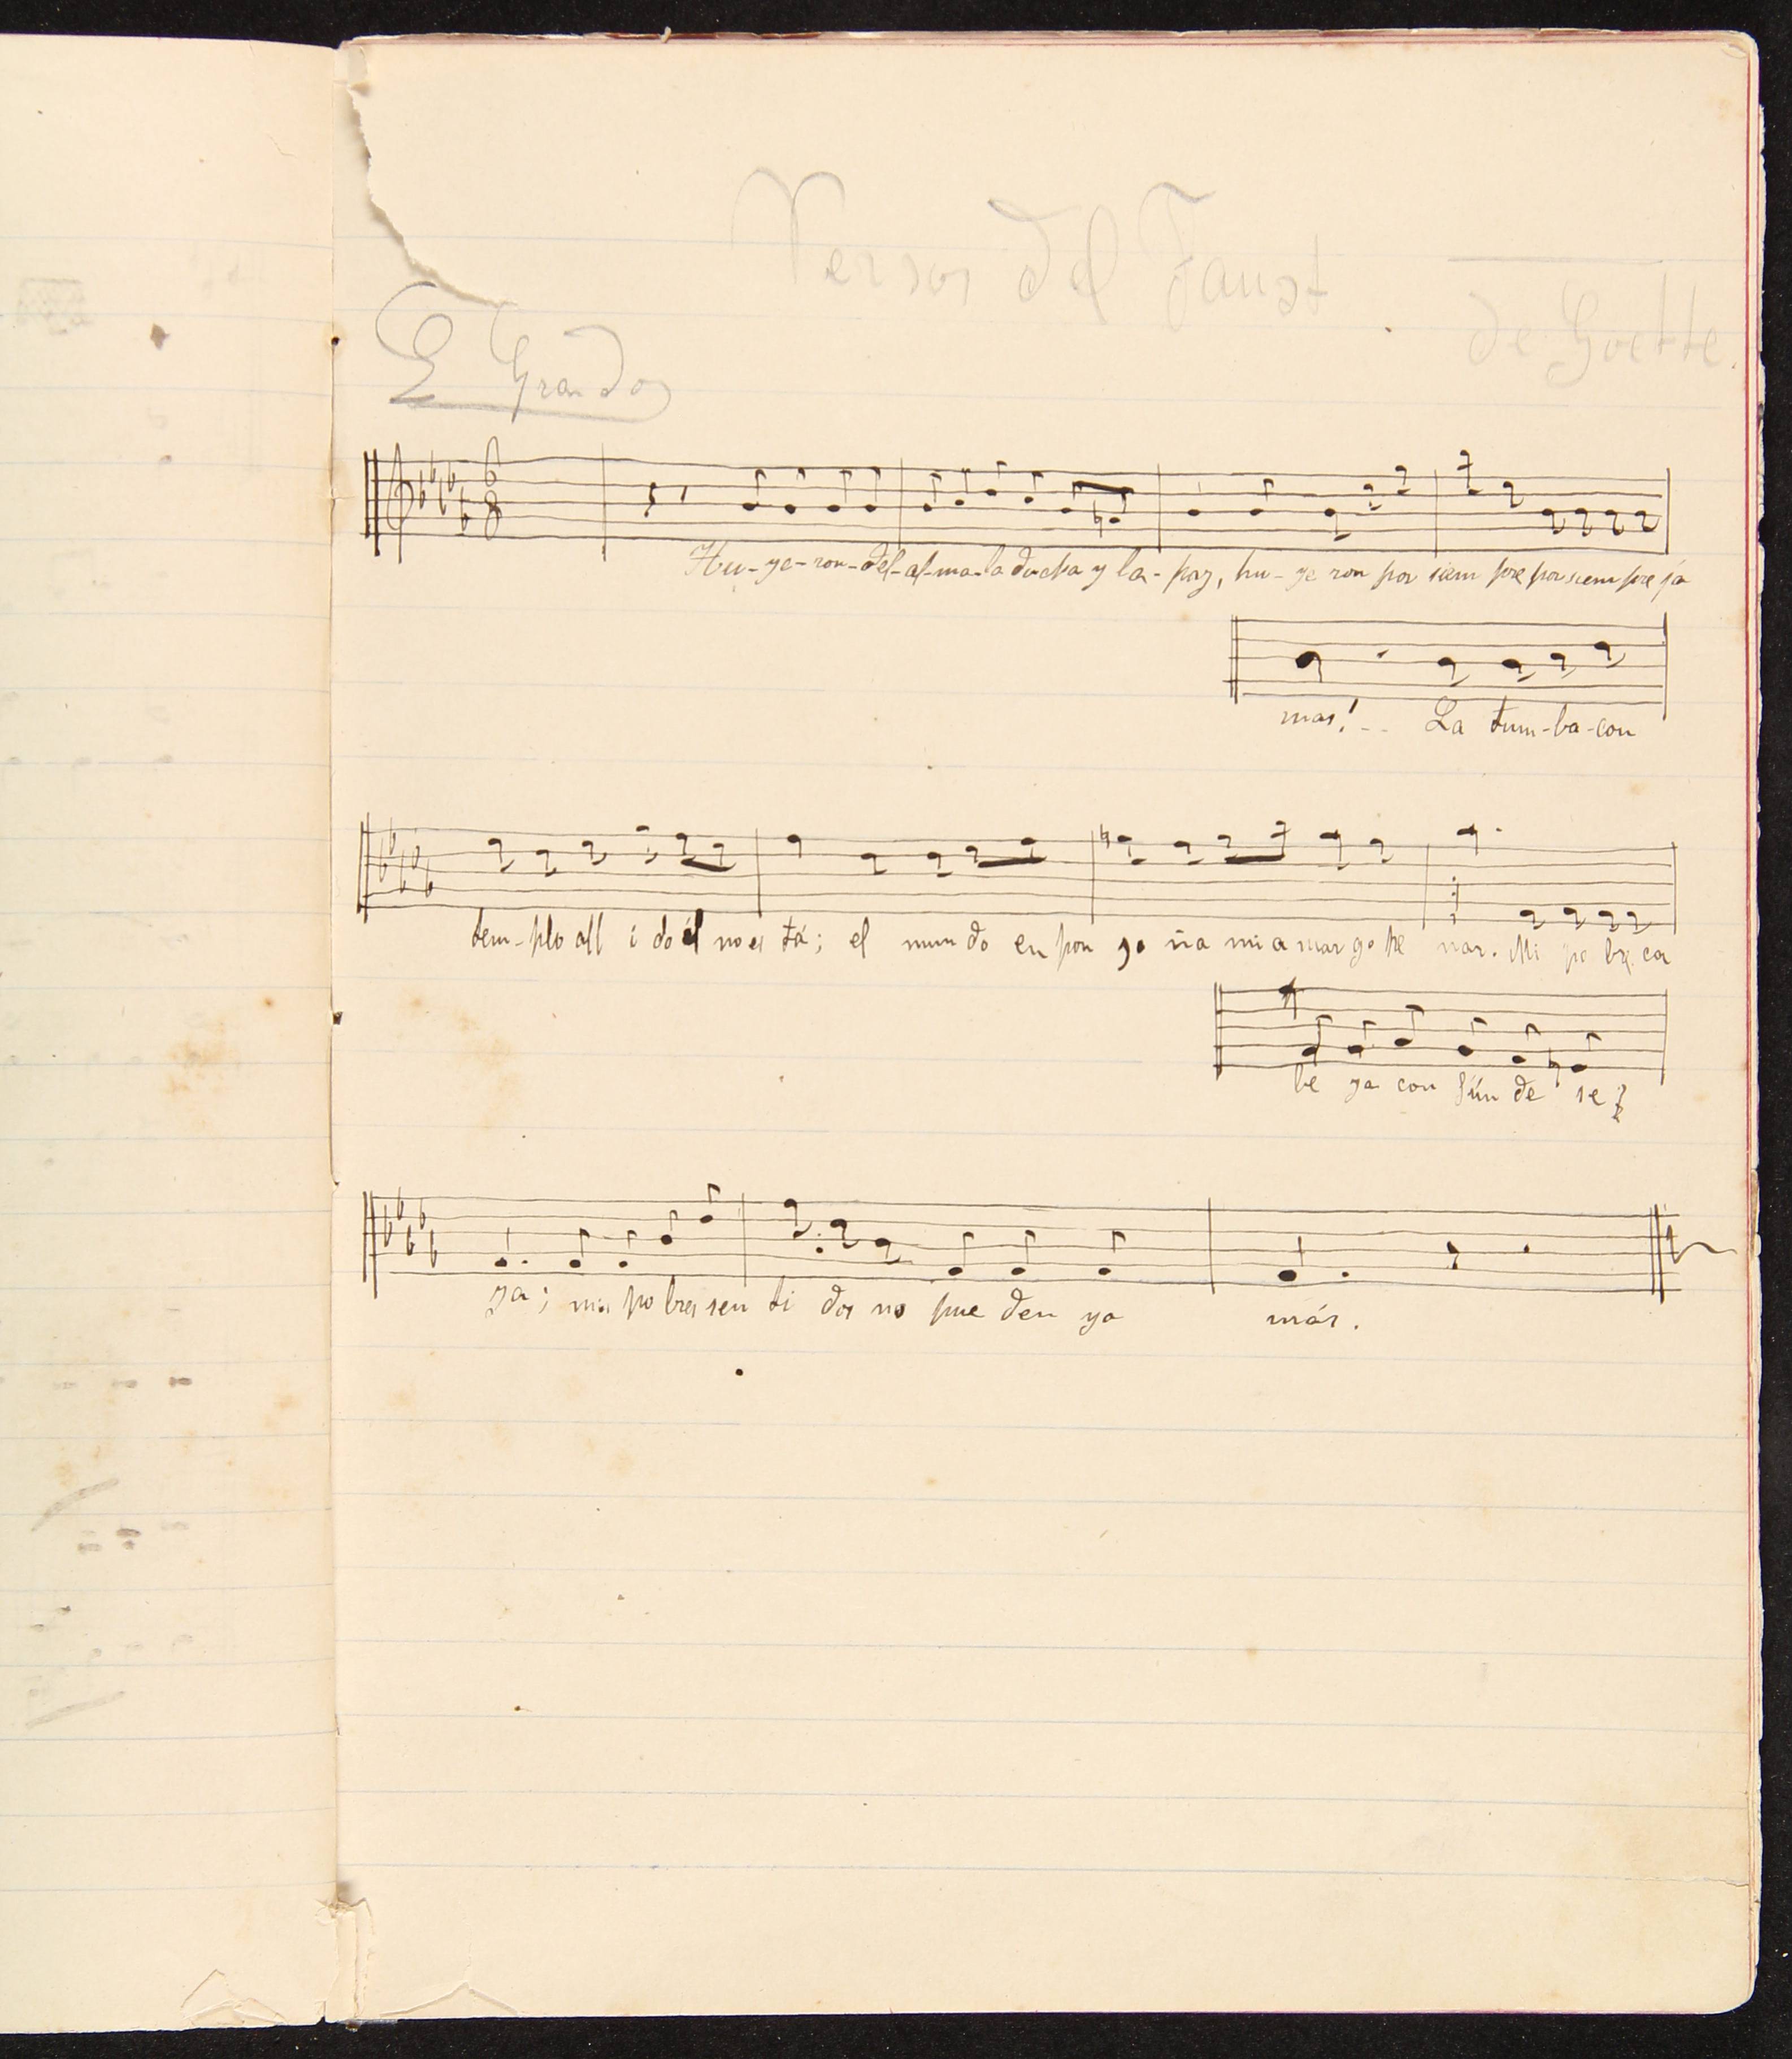 Versos del Faust
de Goette.
E Granados
Hu-ye-ron-del-al-ma-la dicha y la-paz, hu-ye ron por siem pre por siem pre ja
mas!-- La tum-ba-con
tem-plo all i do él no es tá; el mun do en pon zo ña mi a mar go pe nar. Mi po bre ca
be za con fún de se
ya; mis po bres sen ti dos no pue den ya más.